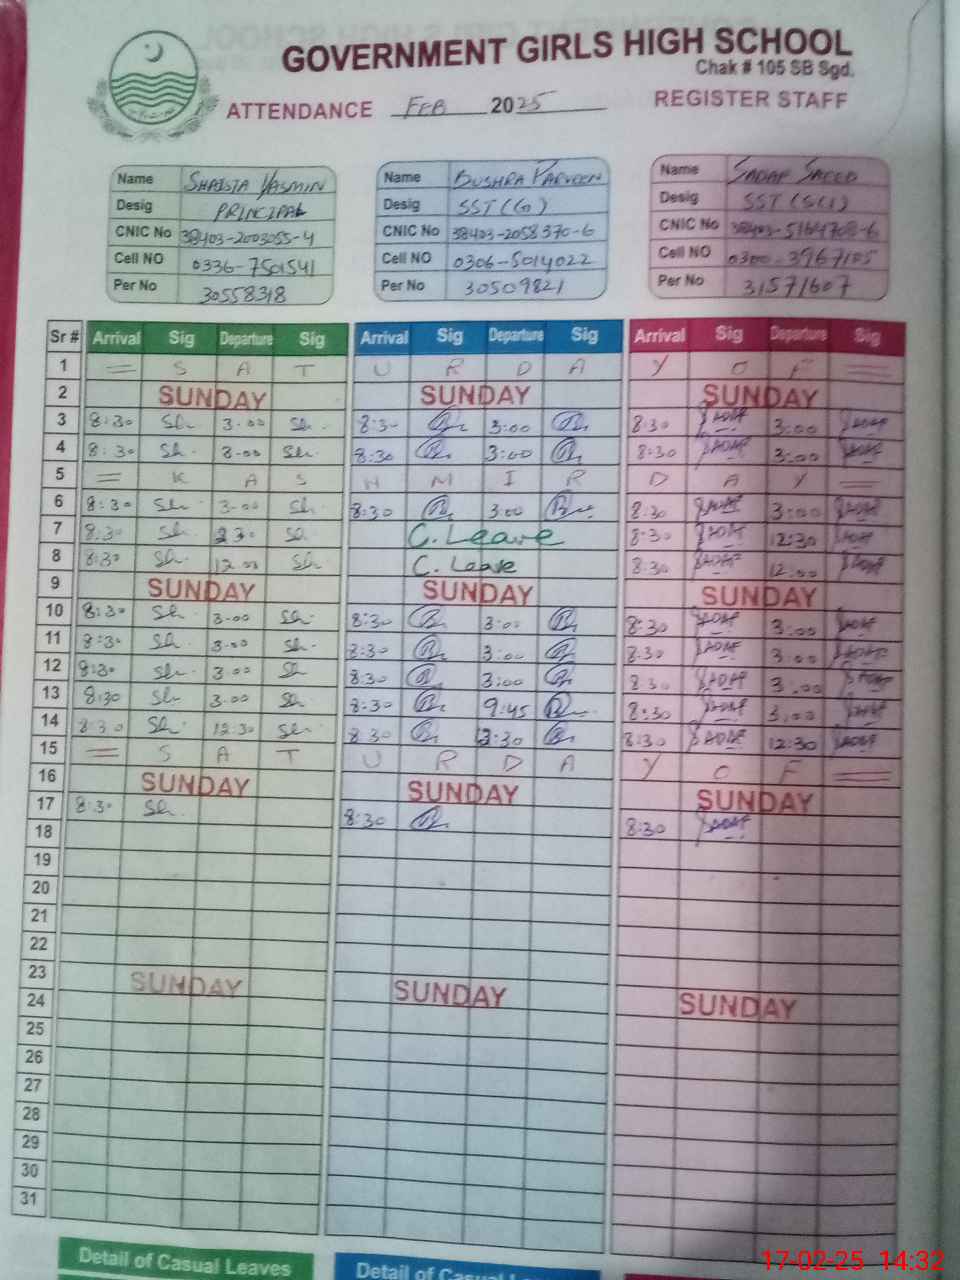 GOVERNMENT GIRLS HIGH SCHOOL
Chak # 105 SB Sgd.
ATTENDANCE FEB 2025 REGISTER STAFF
Name SHAISTA YASMIN Name BUSHRA PARVEEN Name SADAF SAEED
Desig PRINCIPAL Desig SST (G) Desig SST (SCI)
CNIC No 38403-2003055-4 CNIC No 38403-2058370-6 CNIC No
Cell NO 0336-7501541 Cell NO 0306-5014022 Cell NO
Per No 30558318 Per No 30509821 Per No 31571607
Sr # Arrival Sig Departure Sig Arrival Sig Departure Sig Arrival Sig Departure Sig
1 = S A T U R D A Y O F =
2 SUNDAY SUNDAY SUNDAY
3 8:30 Sh 3.00 Sh 8:30 3:00 8:30 SADAF 3:00 SADAF
4 8:30 Sh. 3.00 Sh. 8:30 3:00 8:30 SADAF 3:00 SADAF
5 = K A S H M I R D A Y =
6 8:30 Sh. 3.00 Sh. 8:30 3:00 8:30 SADAF 3:00 SADAF
7 8:30 Sh. Sh C. Leave 8:30 SADAF 12:30 SADAF
8 8:30 Sh. 12.00 Sh. C. Leave 8:30 SADAF 12:00 SADAF
9 SUNDAY SUNDAY SUNDAY
10 8:30 Sh. 3.00 Sh. 8:30 3:00 8:30 SADAF 3:00 SADAF
11 8:30 Sh. 3.00 Sh. 8:30 3:00 8:30 SADAF 3:00 SADAF
12 8:30 Sh. 3.00 Sh 8:30 3:00 8:30 SADAF 3:00 SADAF
13 8:30 Sh 3.00 Sh. 8:30 9:45 8:30 SADAF 3:00 SADAF
14 8:30 Sh. 12:30 Sh. 8:30 8:30 SADAF 12:30 SADAF
15 = S A T U R D A Y O F =
16 SUNDAY SUNDAY SUNDAY
17 8:30 Sh. 8:30 8:30 SADAF
18
19
20
21
22
23 SUNDAY SUNDAY SUNDAY
24
25
26
27
28
29
30
31
Detail of Casual Leaves Detail of Casual Leaves
17-02-25 14:32